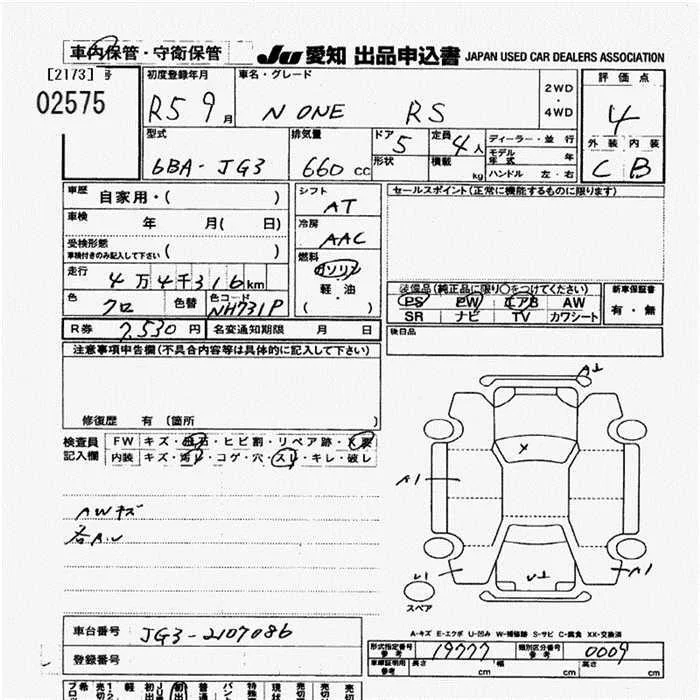 車内保管・守衛保管
JU 愛知 出品申込書 JAPAN USED CAR DEALERS ASSOCIATION
[2173] 号
02575
初度登録年月
R5 9月
車名・グレード
N ONE RS
2WD
・
4WD
評価点
4
外装 内装
C B
型式
6BA-JG3
排気量
660 cc
ドア 5
形状
定員 4人
積載 kg
ディーラー・並行
モデル年式 年
ハンドル 左・右
車歴 自家用・( )
車検 年 月( 日)
受検形態
車検付きのみ記入して下さい ( )
走行 4万4千316km
色 クロ 色替 色コード NH731P
シフト
AT
冷房
AAC
燃料
ガソリン
軽油
( ・ )
セールスポイント(正常に機能するものに限ります)
装備品(純正品に限り○をつけてください)
PS PW エアB AW
SR ナビ TV カワシート
新車保証書
有・無
後日品
R券 7,530円 名変通知期限 月 日
注意事項申告欄(不具合内容等は具体的に記入して下さい)
修復歴 有〔箇所 〕
検査員
記入欄
FW キズ・飛石・ヒビ割・リペア跡・X要
内装 キズ・汚レ・コゲ・穴・スレ・キレ・破レ
AWキズ
各A.U
A1
A1
X
U1
A1
スペア
A-キズ E-エクボ U-凹み W-補修跡 S-サビ C-腐食 XX-交換済
車台番号 JG3-2107086
登録番号
形式指定番号 参考 19777 類別区分番号 参考 0004
車庫証明用 参考 長さ cm 幅 cm 高さ cm